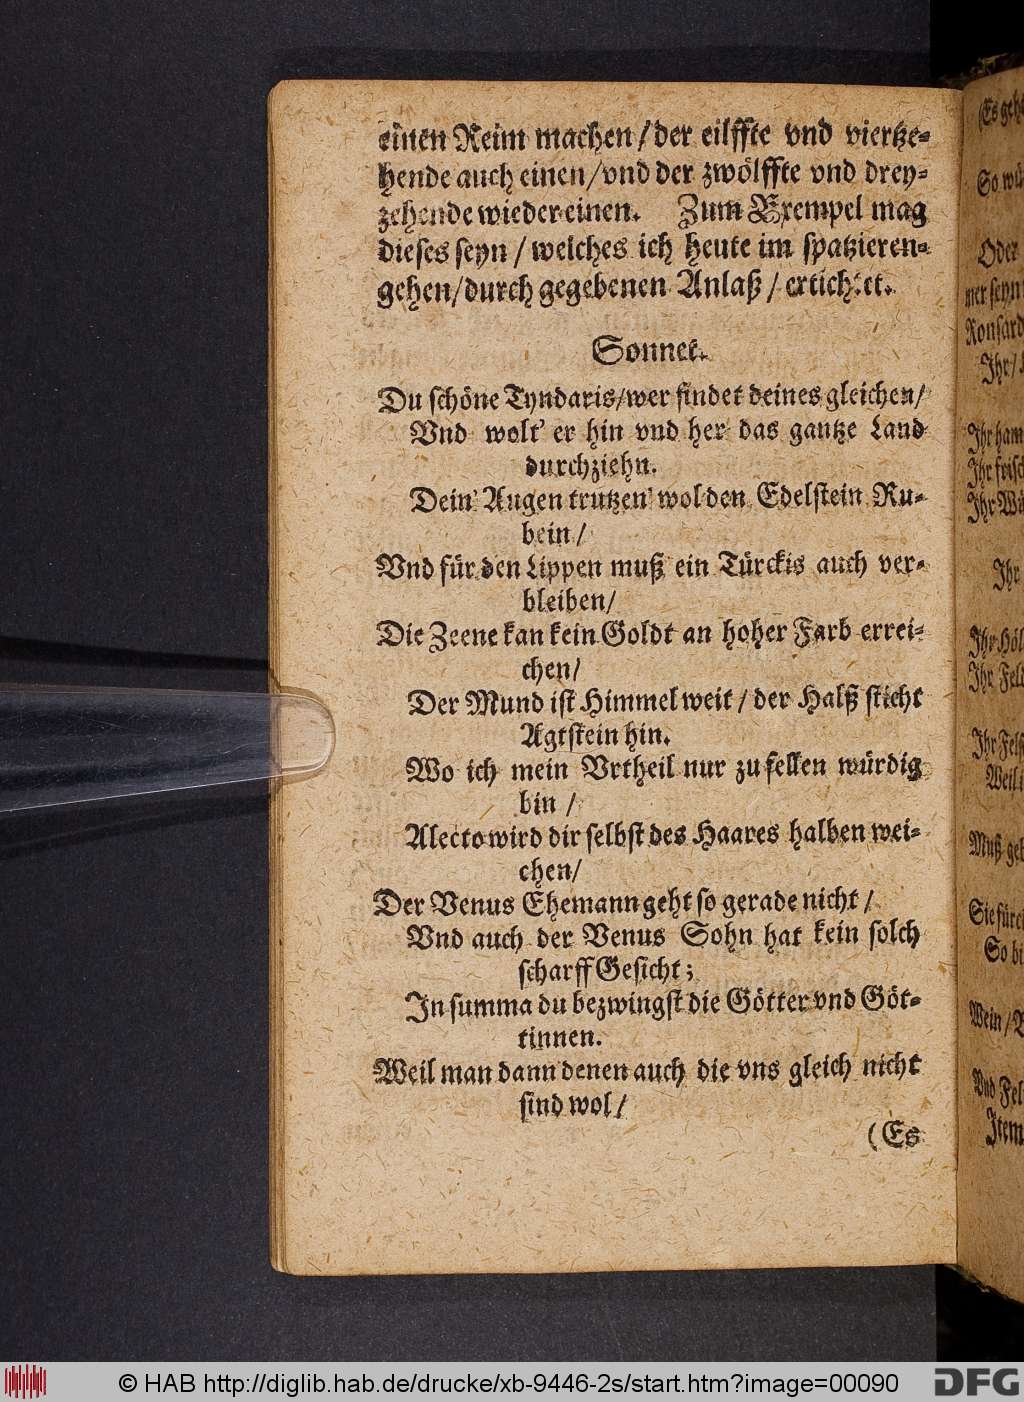 einen Reim machen / der eilffte vnd viertze-
hende auch einen / vnd der zwölffte vnd drey-
zehende wieder einen. Zum Exempel mag
dieses seyn / welches ich heute im spatzieren-
gehen / durch gegebenen Anlaß / ertichtet.
Sonnet.
Du schöne Tyndaris / wer findet deines gleichen /
Vnd wolt' er hin vnd her das gantze Land
durchziehn.
Dein' Augen trutzen' wol den Edelstein Ru-
bein /
Vnd für den Lippen muß ein Türckis auch ver-
bleiben /
Die Zeene kan kein Goldt an hoher Farb errei-
chen /
Der Mund ist Himmel weit / der Halß sticht
Agtstein hin.
Wo ich mein Vrtheil nur zu fellen würdig
bin /
Alecto wird dir selbst des Haares halben wei-
chen /
Der Venus Ehemann geht so gerade nicht /
Vnd auch der Venus Sohn hat kein solch
scharff Gesicht;
In summa du bezwingst die Götter vnd Göt-
tinnen.
Weil man dann denen auch die vns gleich nicht
sind wol /
(Es
So
Oder
mer seyn
Ihr /
Ihr
Ihr
Ihr
Ihr
Muß
So
Wein /
Vnd
Item
© HAB http://diglib.hab.de/drucke/xb-9446-2s/start.htm?image=00090
DFG